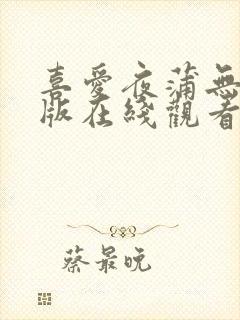 喜愛夜蒲無
版在綫觀看
蔡最晚